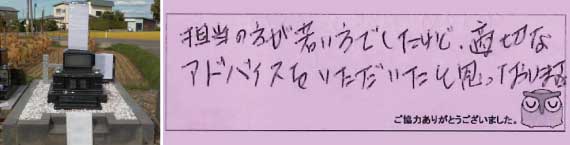 担当の方が若い方でしたけど、適切な
アドバイスをいただいたと思っております
ご協力ありがとうございました。